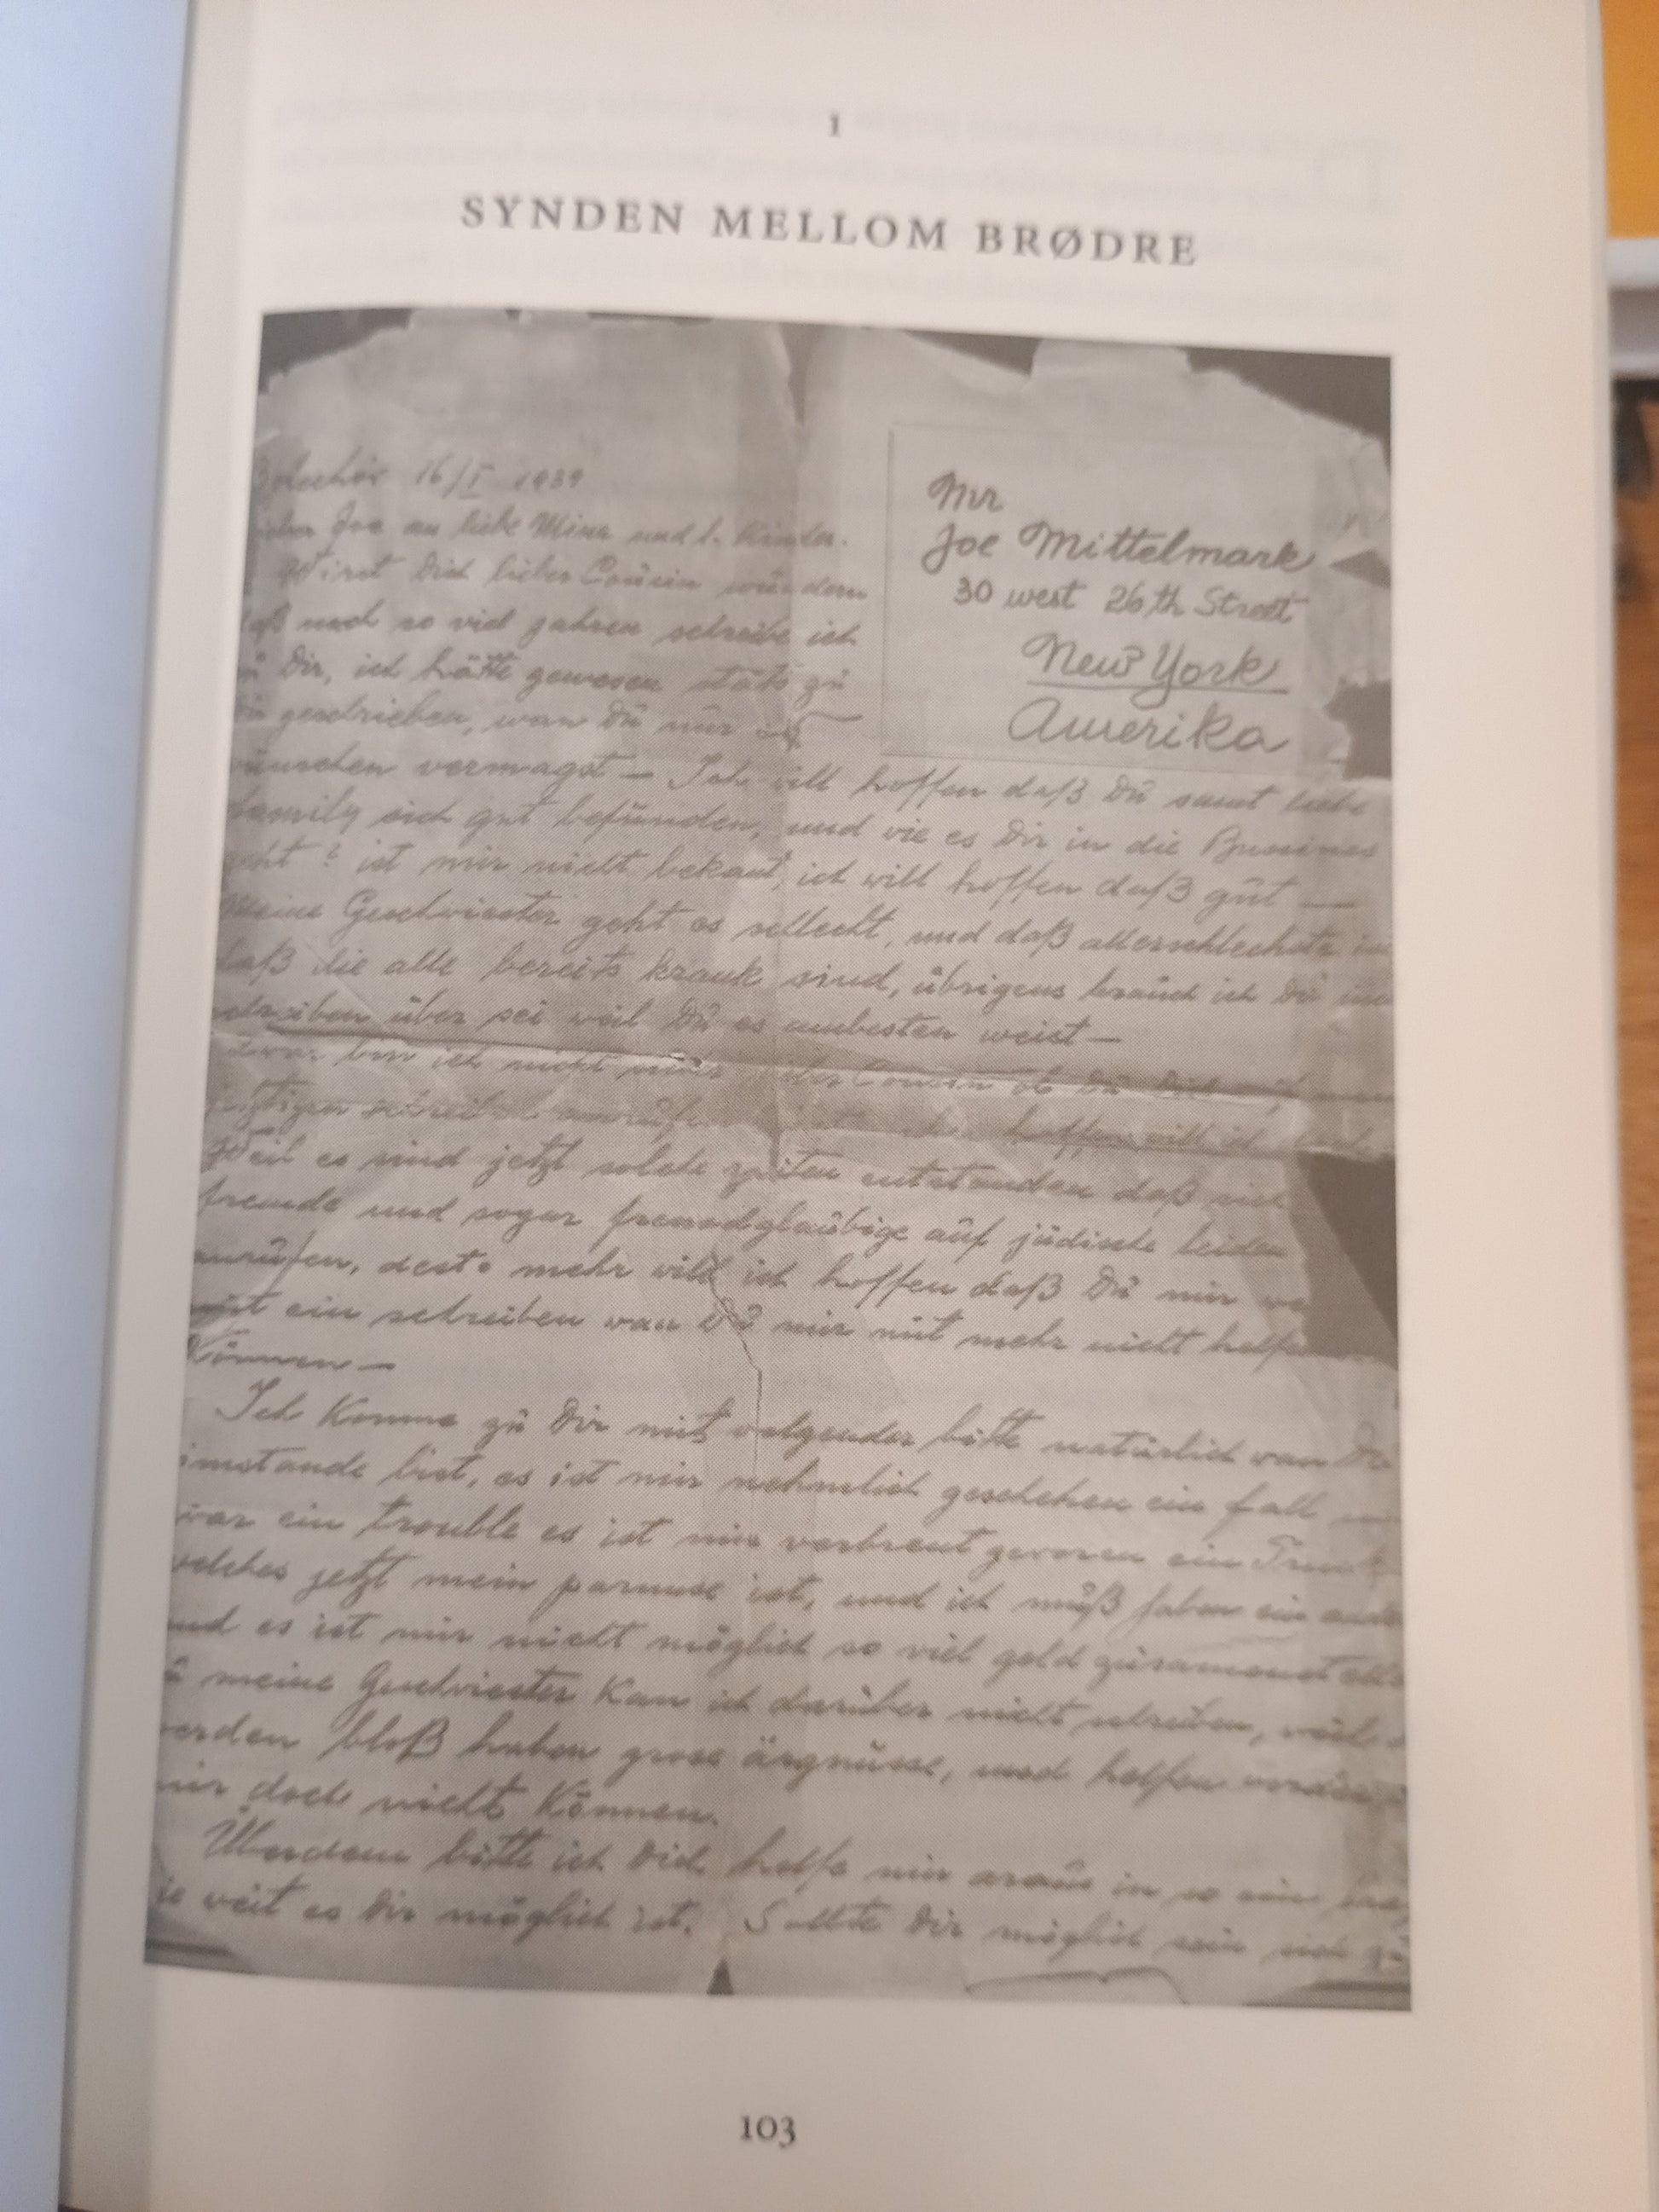 I
SYNDEN MELLOM BRØDRE
16/I 1939
Joe an liebe Mina und l. Kinder.
Wirst Dich lieber Cousin wundern
nach so viel jahren schreibe ich
Dir, ich hätte gewesen stäts zu
geschrieben, wan Du nur
wünschen vermagst — Ich will hoffen daß Du samt liebe
family sich gut befünden, und vie es Dir in die Busines
geht ? ist mir nicht bekant, ich will hoffen daß gut —
Meine Geschwister geht es schlecht, und daß allerschlechste
daß die alle bereits krank sind, übrigens brauch ich Dir
schreiben über sei weil Du es ambesten weist —
zwar bin ich nicht Cousin ob Du Dich
hoffen will ich
Weil es sind jetzt solche zeiten entstanden daß sich
fremde und sogar fremdglaübige auf jüdische leiden
anrufen, desto mehr will ich hoffen daß Du mir
mit ein schreiben wan Du mir mit mehr nicht helfen
Können —
Ich Komme zu Dir mit volgender bitte natürlich wan Du
imstande bist, es ist mir nehmlich geschehen ein fall
war ein trouble es ist mir verbrent geworen ein Truck
welches jetzt mein parnuse ist, und ich muß haben ein
und es ist mir nicht möglich so viel geld
meine Geschwister Kan ich darüber nicht schreiben, weil
werden bloß haben grose ärgnüsse, und helfen werden
mir doch nicht Können.
Überdem bitte ich Dich helfe mir araus in so ein
weit es Dir möglich ist. Sollte Dir möglich sein sich zu
Mr
Joe Mittelmark
30 west 26th Street
New York
Amerika
103